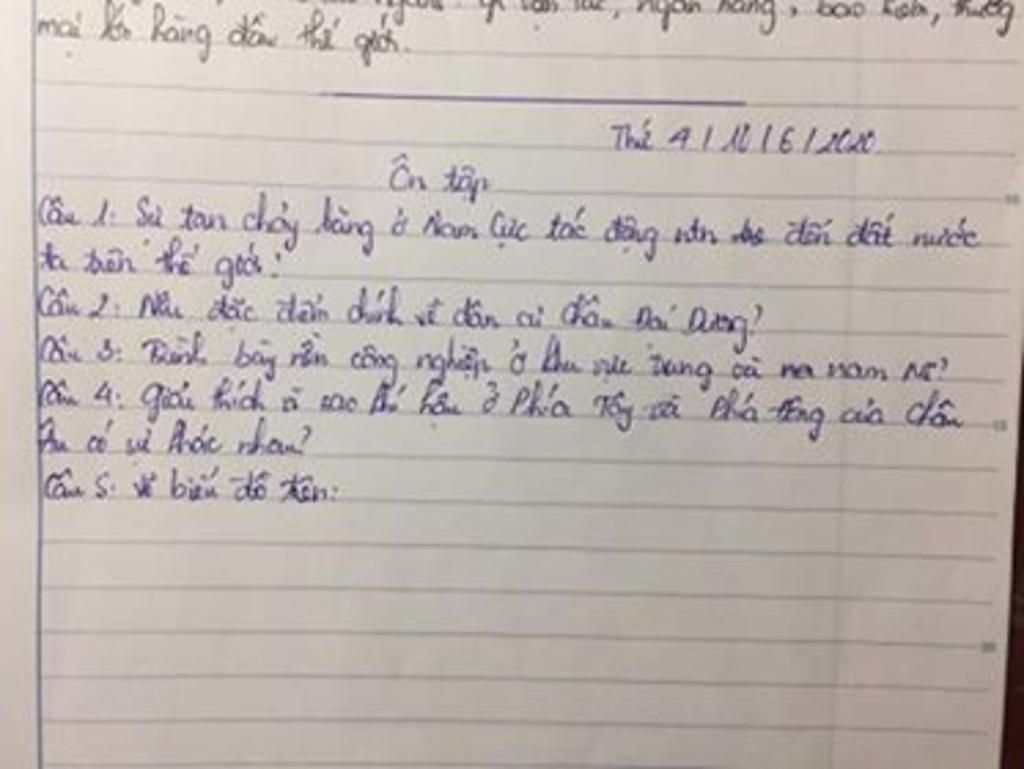 vận tải, ngân hàng, bảo hiểm, thương
mại lớn hàng đầu thế giới.
Thứ 4 / 10 / 6 / 2020
Ôn tập
Câu 1: Sự tan chảy băng ở Nam Cực tác động ntn đến đất nước
ta trên thế giới?
Câu 2: Nêu đặc điểm chính về dân cư Châu Đại Dương?
Câu 3: Trình bày nền công nghiệp ở khu vực Trung và nam Mĩ?
Câu 4: Giải thích vì sao khí hậu ở Phía Tây và Phía đông của Châu
Âu có sự khác nhau?
Câu 5: Vẽ biểu đồ tròn: